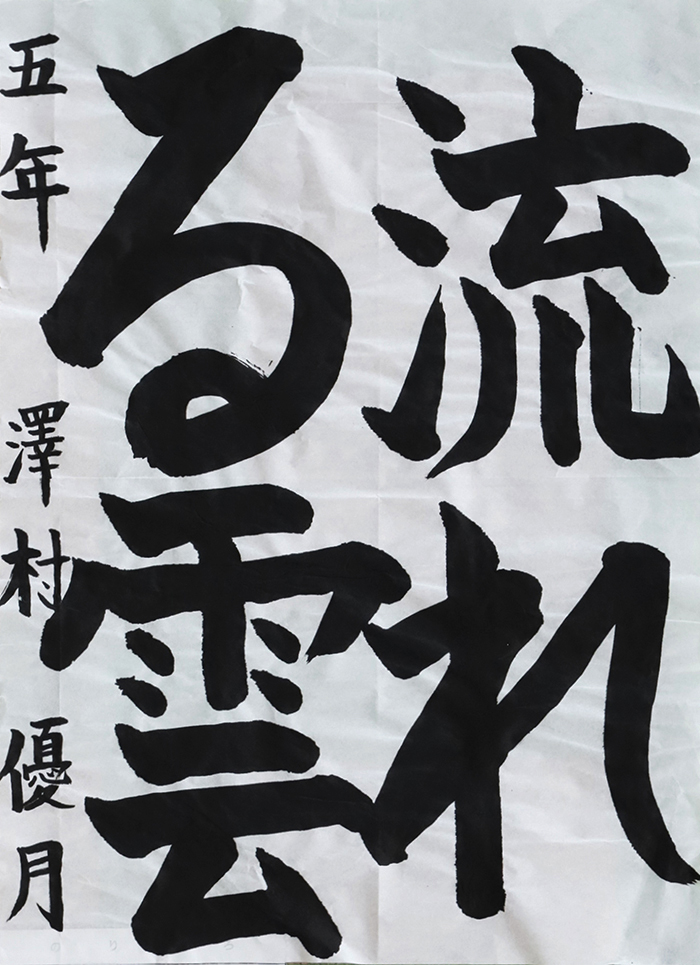 流れ
る雲
五年 澤村 優月